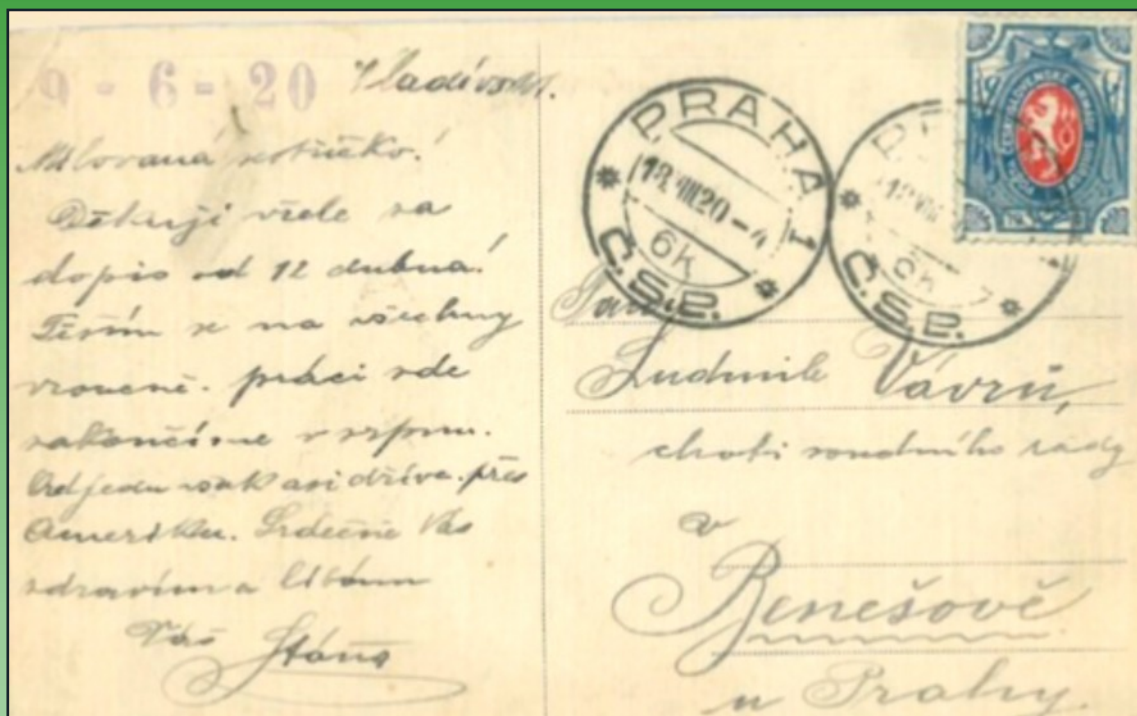 9 - 6 - 20 Vladivost.
Milovaná sestřičko!
Děkuji vřele za
dopis od 12 dubna.
Těším se na všechny
srovnaně. práci zde
zakončíme v srpnu.
Odjedu však asi dříve. přes
Ameriku. Srdečně Vás
zdravím a líbám
Váš Stáňa
PRAHA 1
18.VIII.20-4
6k
Č.S.P.
18.VIII
6k
Č.S.P.
Paní
Ludmile Vávrů,
choti soudního rady
v
Benešově
u Prahy.